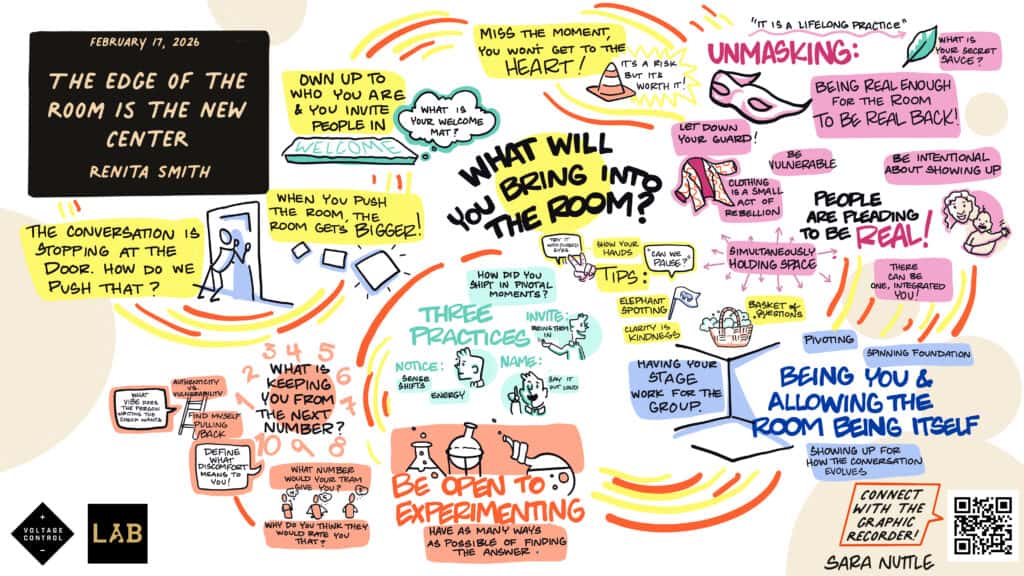 FEBRUARY 17, 2026
THE EDGE OF THE
ROOM IS THE NEW
CENTER
RENITA SMITH
THE CONVERSATION IS
STOPPING AT THE
DOOR. HOW DO WE
PUSH THAT?
OWN UP TO
WHO YOU ARE
& YOU INVITE
PEOPLE IN
WELCOME
WHAT IS
YOUR WELCOME
MAT?
WHEN YOU PUSH
THE ROOM, THE
ROOM GETS BIGGER!
MISS THE MOMENT,
YOU WON'T GET TO THE
HEART!
IT'S A RISK
BUT IT'S
WORTH IT!
WHAT WILL
YOU BRING INTO
THE ROOM?
"IT IS A LIFELONG PRACTICE"
UNMASKING:
WHAT IS
YOUR SECRET
SAUCE?
BEING REAL ENOUGH
FOR THE ROOM
TO BE REAL BACK!
LET DOWN
YOUR GUARD!
BE
VULNERABLE
CLOTHING
IS A SMALL
ACT OF
REBELLION
BE INTENTIONAL
ABOUT SHOWING UP
PEOPLE
ARE PLEADING
TO BE REAL!
SIMULTANEOUSLY
HOLDING SPACE
THERE
CAN BE
ONE, INTEGRATED
YOU!
TRY IT
WITH CLOSED
EYES
SHOW YOUR
HANDS
TIPS:
"CAN WE
PAUSE?"
ELEPHANT
SPOTTING
CLARITY IS
KINDNESS
BASKET OF
QUESTIONS
HOW DID YOU
SHIFT IN PIVOTAL
MOMENTS?
THREE
PRACTICES
INVITE:
BRING THEM
IN
NOTICE:
SENSE
SHIFTS
ENERGY
NAME:
SAY IT
OUT LOUD
3 4 5
2 6
1 7
10 9 8
WHAT IS
KEEPING
YOU FROM
THE NEXT
NUMBER?
AUTHENTICITY
VS.
VULNERABILITY
WHAT
VIBE DOES
THE PERSON
WRITING THE
CHECK WANT?
FIND MYSELF
PULLING
BACK
DEFINE
WHAT
DISCOMFORT
MEANS TO
YOU!
WHAT NUMBER
WOULD YOUR TEAM
GIVE YOU?
WHY DO YOU THINK THEY
WOULD RATE YOU
THAT?
BE OPEN TO
EXPERIMENTING
HAVE AS MANY WAYS
AS POSSIBLE OF FINDING
THE ANSWER.
HAVING YOUR
STAGE
WORK FOR THE
GROUP.
PIVOTING
SPINNING FOUNDATION
BEING YOU &
ALLOWING THE
ROOM BEING ITSELF
SHOWING UP FOR
HOW THE CONVERSATION
EVOLVES
CONNECT
WITH THE
GRAPHIC
RECORDER!
SARA NUTTLE
VOLTAGE
CONTROL
LAB